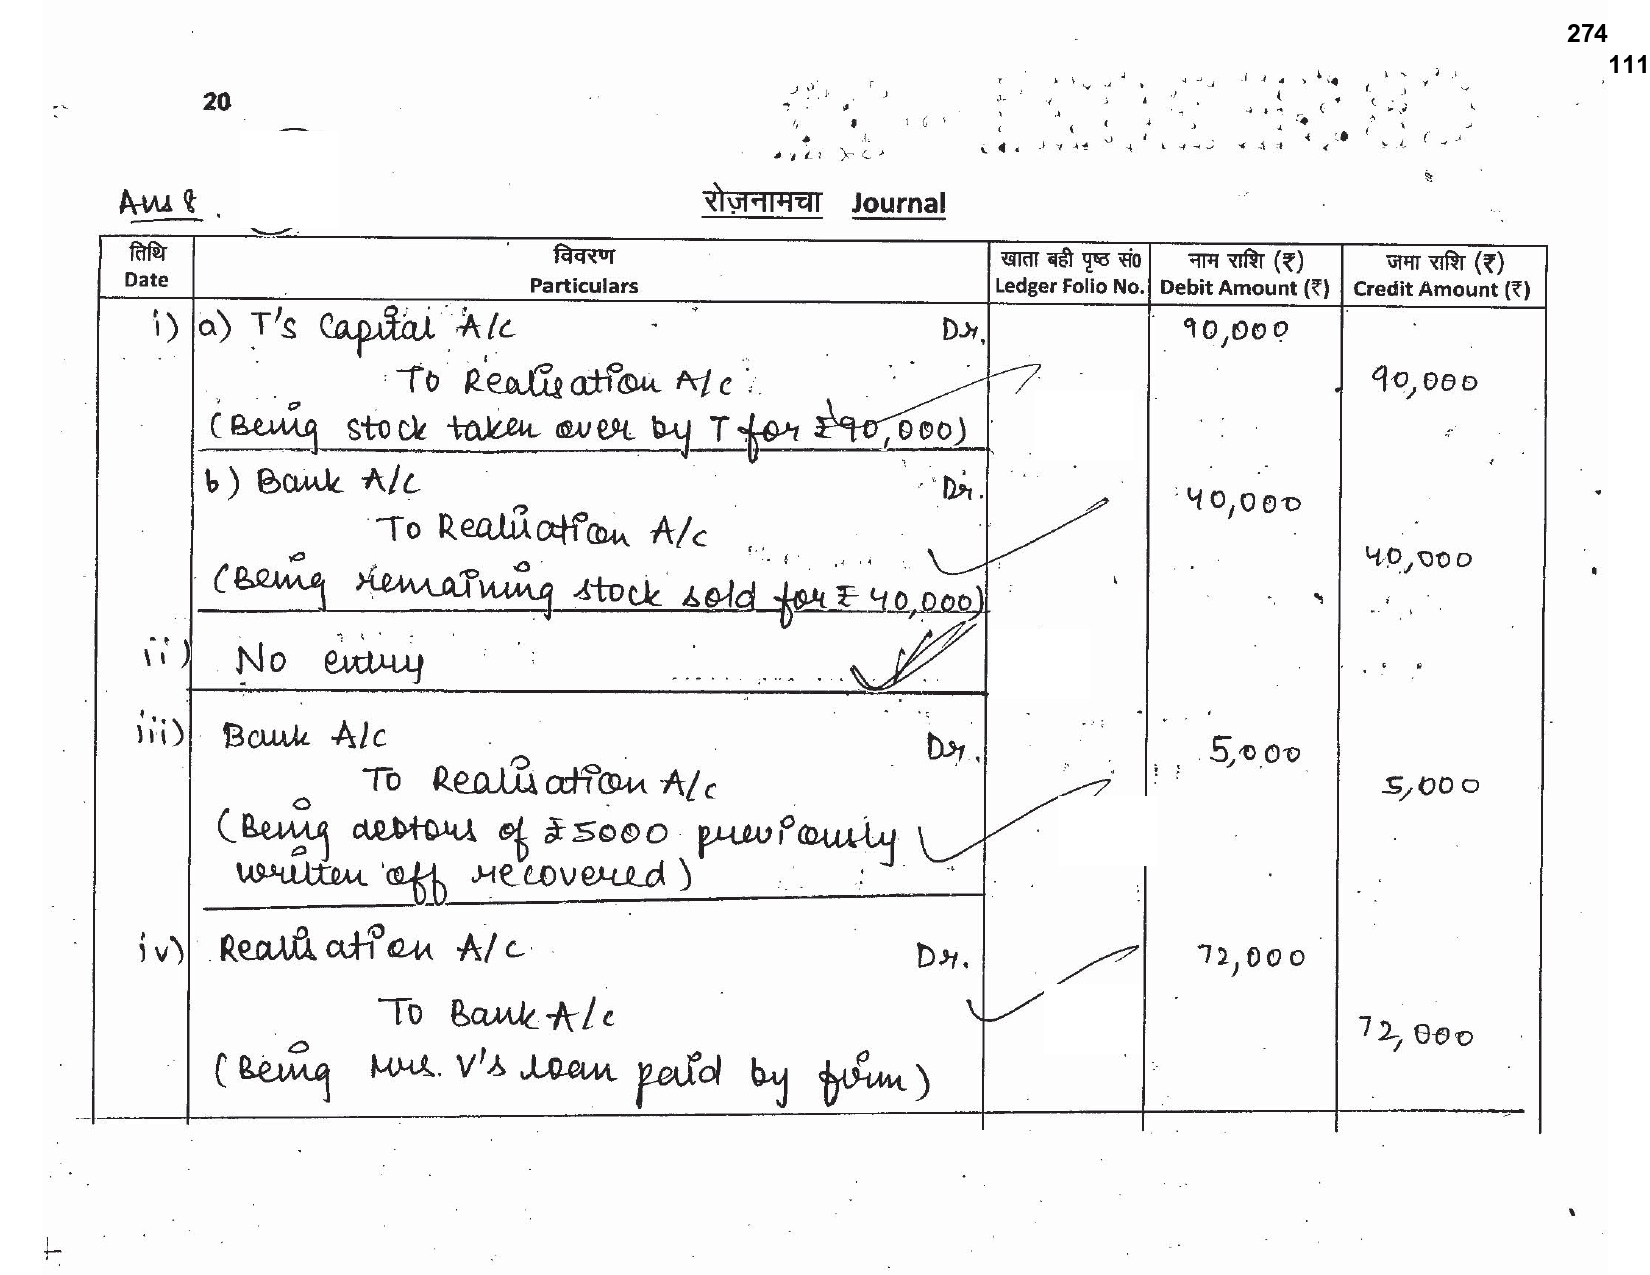 274
111
20
Ans 8.
रोज़नामचा Journal
तिथि
Date
विवरण
Particulars
खाता बही पृष्ठ सं०
Ledger Folio No.
नाम राशि (₹)
Debit Amount (₹)
जमा राशि (₹)
Credit Amount (₹)
i) a) T's Capital A/c Dr. 90,000
To Realisation A/c 90,000
(Being stock taken over by T for ₹90,000)
b) Bank A/c Dr. 40,000
To Realisation A/c 40,000
(Being remaining stock sold for ₹ 40,000)
ii) No entry
iii) Bank A/c Dr. 5,000
To Realisation A/c 5,000
(Being debtors of ₹5000 previously
written off recovered)
iv) Realisation A/c Dr. 72,000
To Bank A/c 72,000
(Being Mrs. V's loan paid by firm)